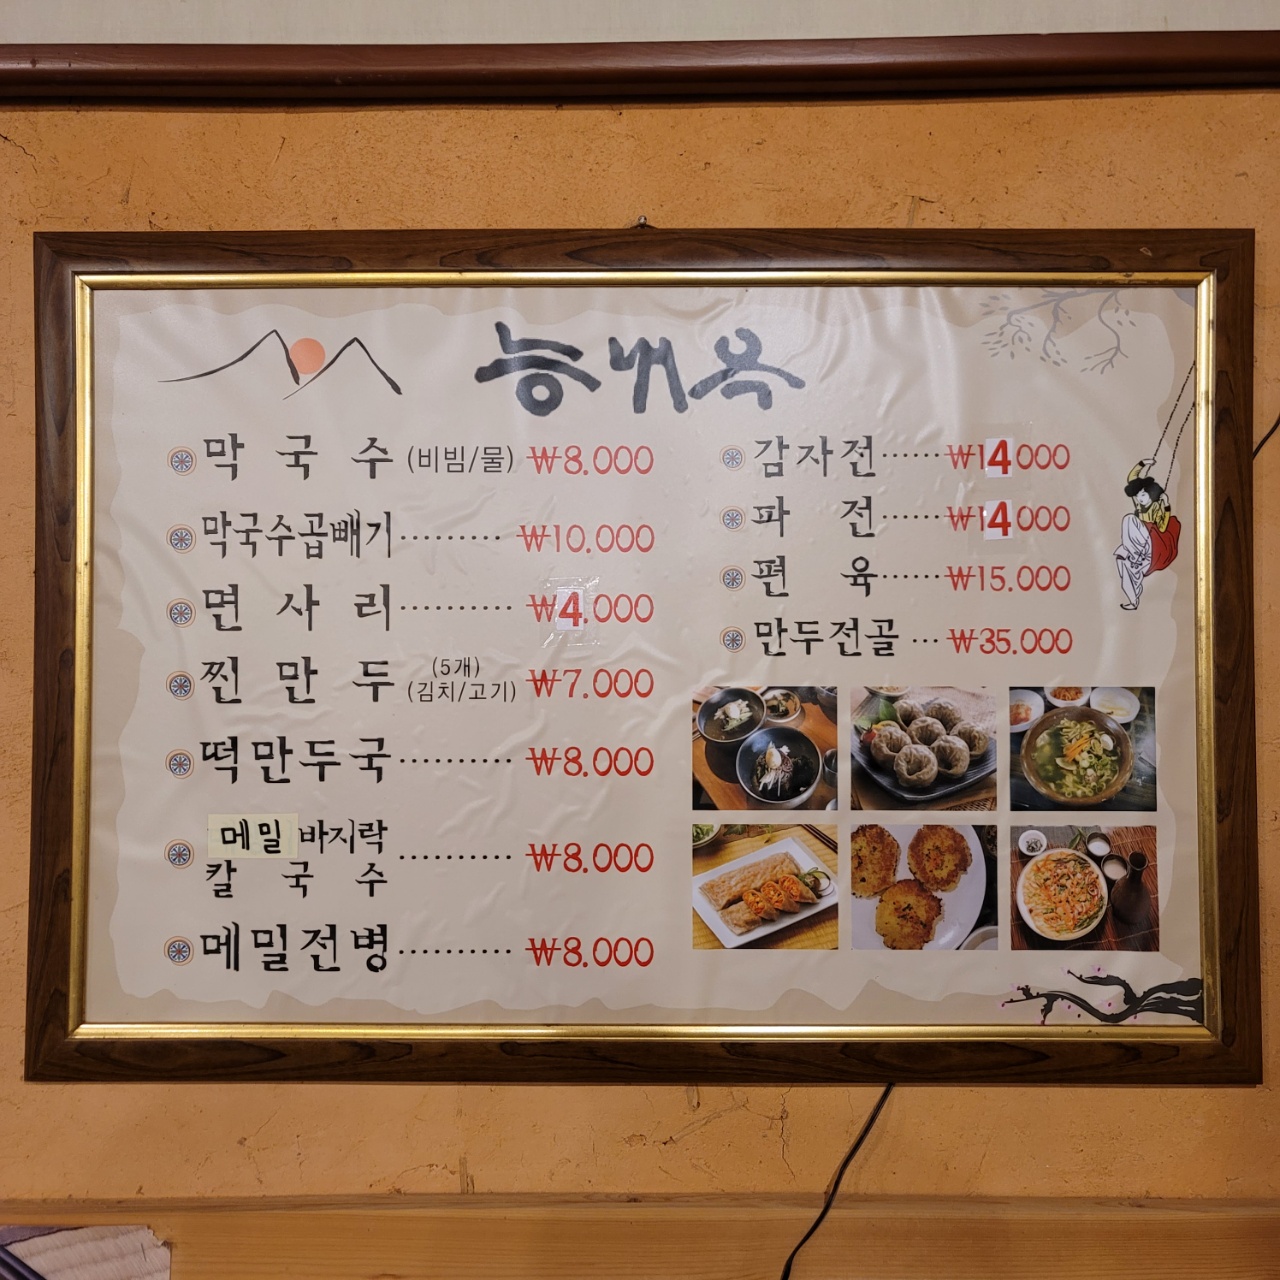 능내옥
막국수 (비빔/물) ₩8.000
막국수곱빼기 ········· ₩10.000
면사리 ·········· ₩4.000
찐만두 (5개) (김치/고기) ₩7.000
떡만두국 ·········· ₩8.000
메밀 바지락
칼국수 ·········· ₩8.000
메밀전병 ·········· ₩8.000
감자전 ······ ₩14000
파전 ······ ₩14000
편육 ······ ₩15.000
만두전골 ··· ₩35.000